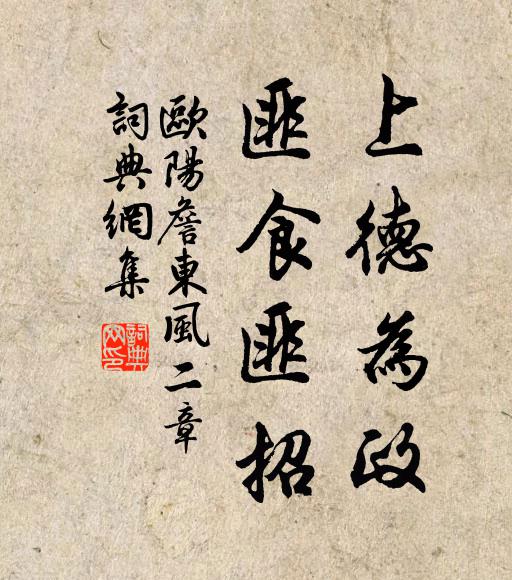 上德為政
匪食匪招
歐陽詹東風二章
詞典網集
詞典網印